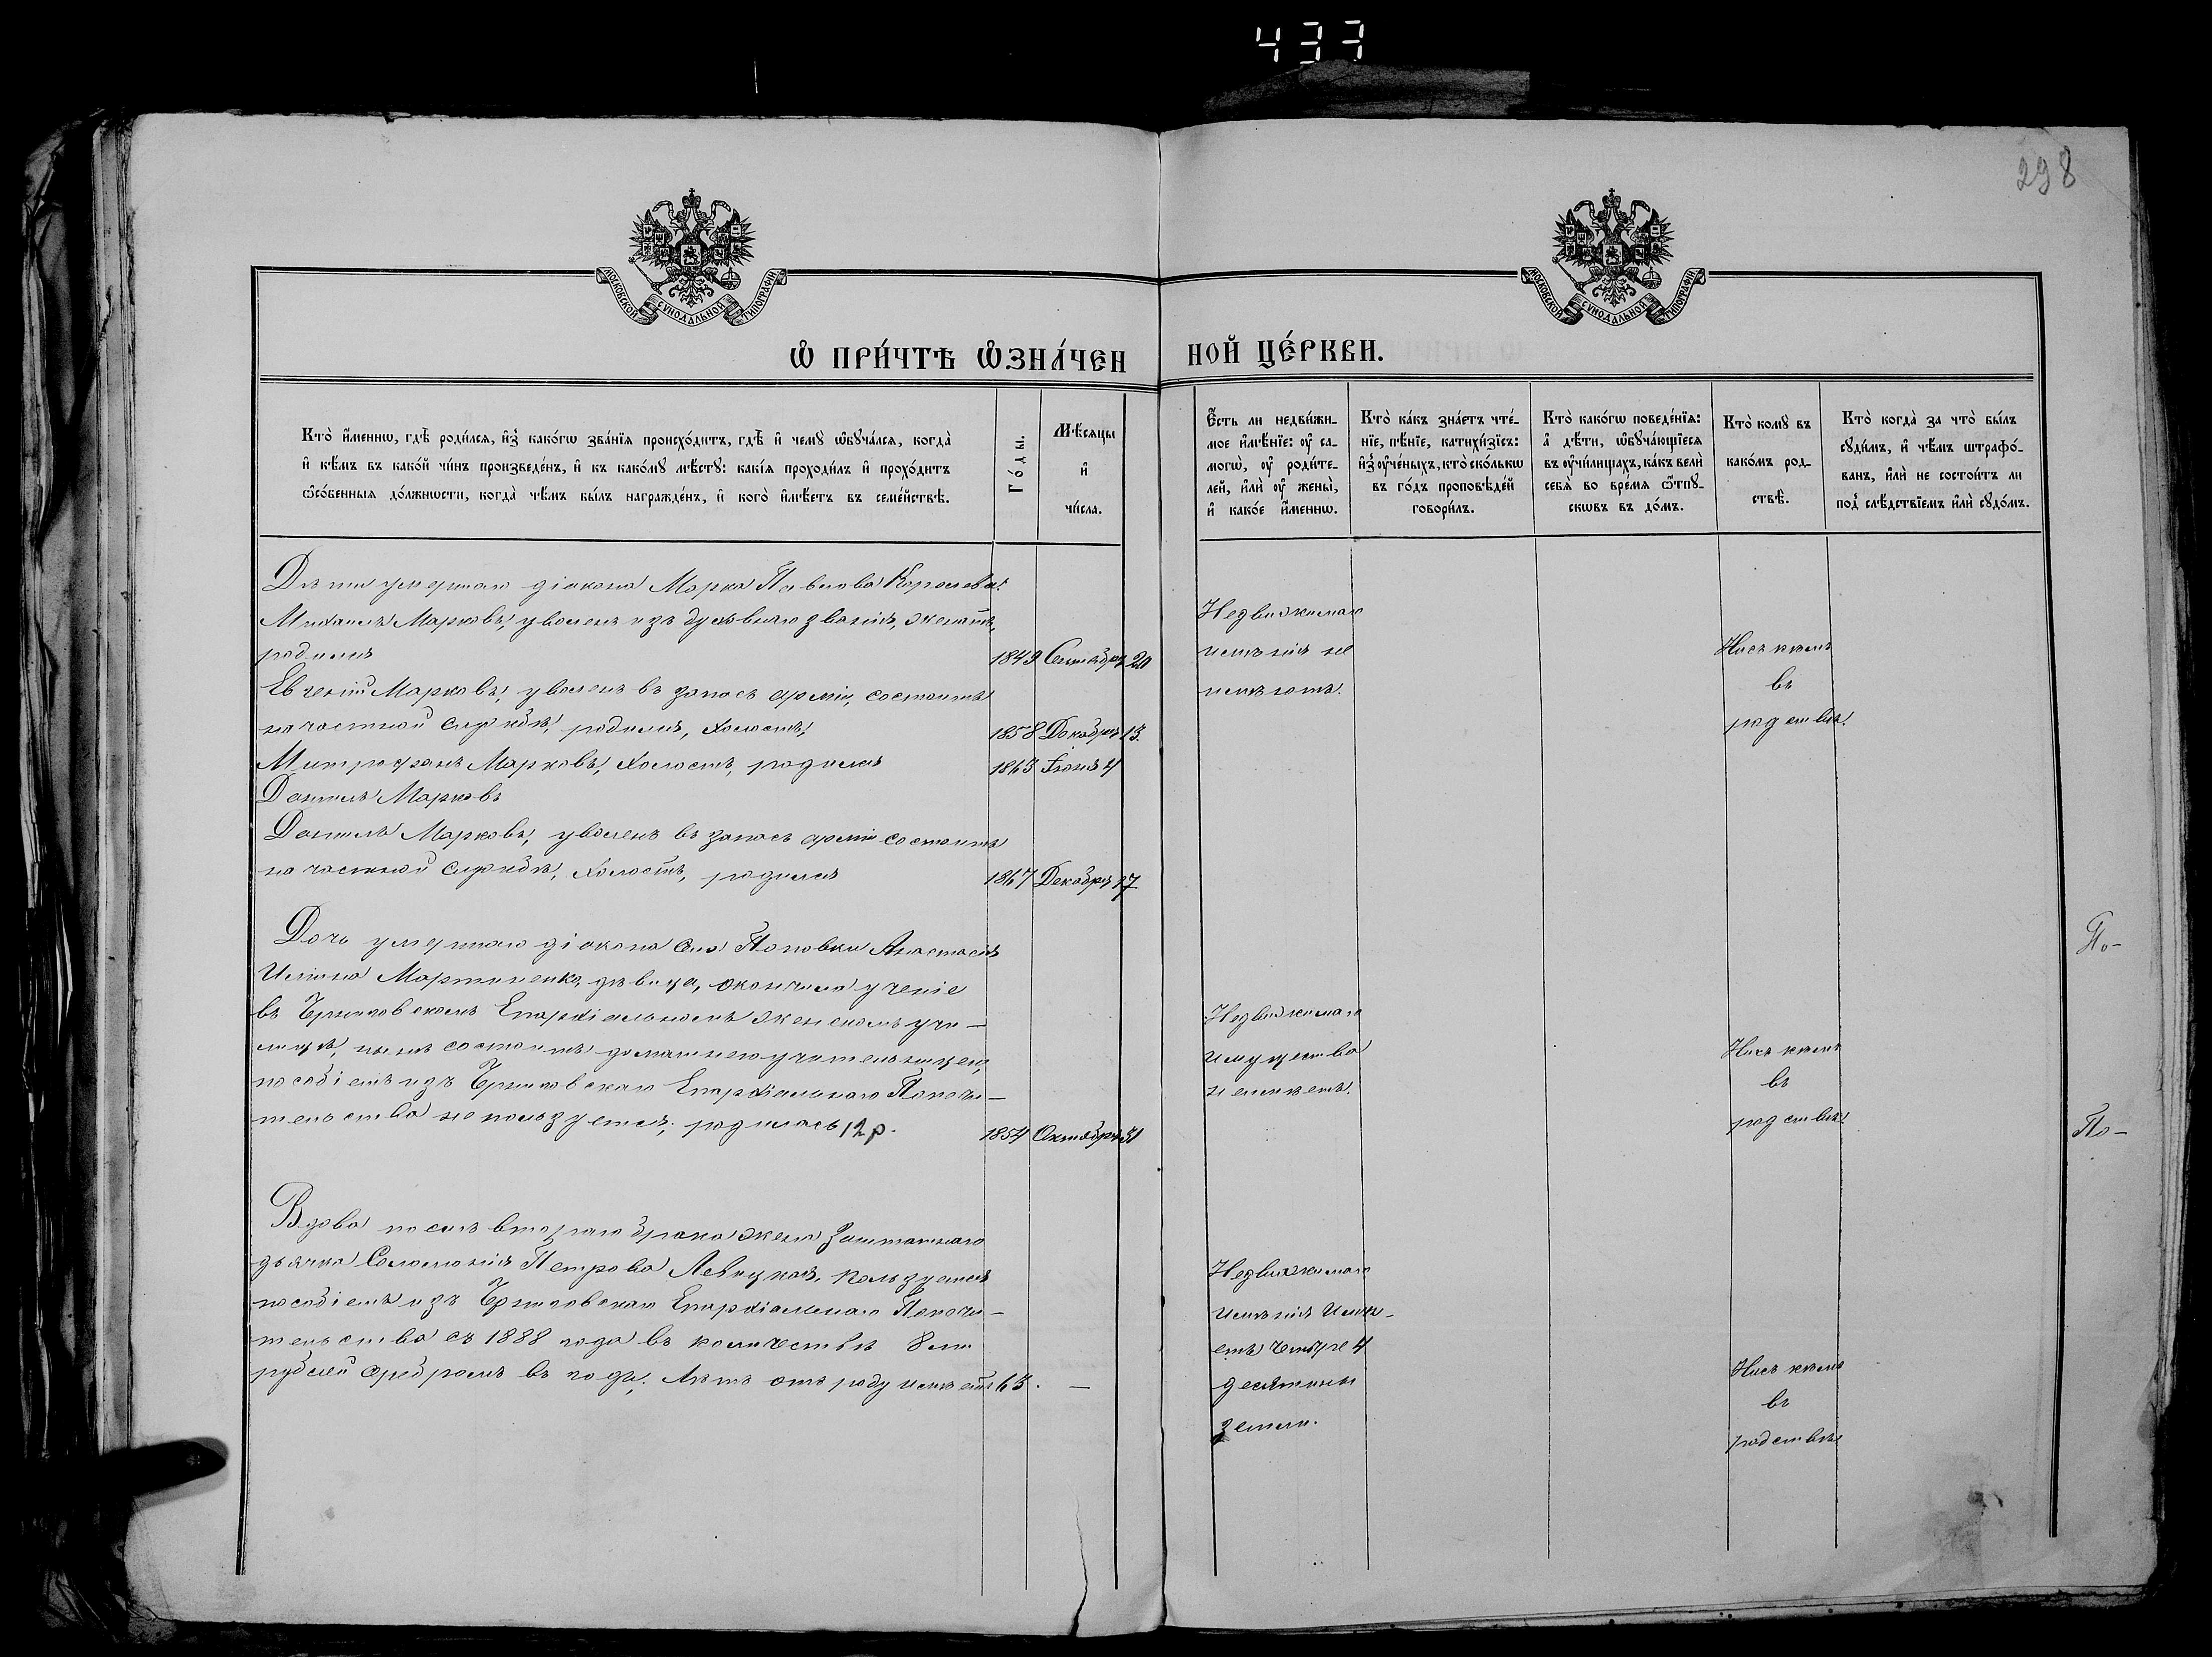 433
298
МОСКОВСКОЙ СѴНОДАЛЬНОЙ ТИПОГРАФІИ
МОСКОВСКОЙ СѴНОДАЛЬНОЙ ТИПОГРАФІИ
Ѡ ПРИ́ЧТѢ ѠЗНА́ЧЕН НОЙ ЦЕ́РКВИ.
Кто̀ и҆́меннѡ, гдѣ̀ роди́лсѧ, и҆з̾ како́гѡ зва́нїѧ происхо́дитъ, гдѣ̀ и҆ чемꙋ̀ ѡ҆бꙋча́лсѧ, когда̀
и҆ кѣ́мъ въ како́й чи́нъ произведе́нъ, и҆ къ како́мꙋ мѣ́стꙋ: какі́ѧ проходи́лъ и҆ прохо́дитъ
ѻ҆со́бенныѧ до́лжнѡсти, когда̀ чѣ́мъ бы́лъ награжде́нъ, и҆ кого̀ и҆мѣ́етъ въ семе́йствѣ.
Го́ды.
Мѣ́сѧцы
и҆
чи́сла.
Є҆́сть ли недви́жи-
мое и҆мѣ́нїе: ᲂу҆ са-
могѡ̀, ᲂу҆ роди́те-
лей, и҆лѝ ᲂу҆ жены̀,
и҆ како́е и҆́меннѡ.
Кто̀ ка́къ зна́етъ чте́-
нїе, пѣ́нїе, катихи́зїсъ:
и҆з̾ ᲂу҆че́ныхъ, кто̀ ско́лькѡ
въ го́дъ проповѣ́дей
говори́лъ.
Кто̀ како́гѡ поведе́нїѧ:
а҆ дѣ́ти, ѡ҆бꙋча́ющїесѧ
въ ᲂу҆чи́лищахъ, ка́къ велѝ
себѧ̀ во вре́мѧ ѿпꙋ-
скѡвъ въ до́мъ.
Кто̀ комꙋ̀ въ
како́мъ род-
ствѣ̀.
Кто̀ когда̀ за что̀ бы́лъ
сꙋди́мъ, и҆ чѣ́мъ штрафо́-
ванъ, и҆лѝ не состои́тъ ли
под̾ слѣ́дствїемъ и҆лѝ сꙋдо́мъ.
Дѣти умершаго діакона Марка Павлова Королева:
Михаилъ Марковъ, уволенъ изъ духовнаго званія, женатъ,
родился 1849 Сентября 20
Евгеній Марковъ, уволенъ въ запасъ арміи, состоитъ
на частной службѣ, родился, холостъ, 1858 Декабря 13.
Митрофанъ Марковъ, холостъ, родился 1863 Іюня 4
Даніилъ Марковъ
Даніилъ Марковъ, уволенъ въ запасъ арміи состоитъ
на частной службѣ, холостъ, родился 1867 Декабря 17
Недвижимаго
имѣнія не
имѣютъ.
Ни съ кѣмъ
въ
родствѣ.
Дочь умершаго діакона села Поповки Анастасія
Иліина Мартиненко, дѣвица, окончила ученіе
въ Черниговскомъ Епархіальномъ женскомъ учи-
лищѣ, нынѣ состоитъ домашнею учительницею,
пособіемъ изъ Черниговскаго Епархіальнаго Попечи-
тельства не пользуется; родилась 12 р. 1854 Октября 31
Недвижимаго
имущества
не имѣетъ.
Ни съ кѣмъ
въ
родствѣ.
По-
По-
Вдова послѣ втораго брака жена Заштатнаго
дьячка Соломонія Петрова Левицкая, пользуется
пособіемъ изъ Черниговскаго Епархіальнаго Попечи-
тельства съ 1888 года въ количествѣ 8 ми
рублей серебромъ въ годъ; лѣтъ отъ роду имѣетъ 63. —
Недвижимаго
имѣнія имѣ-
етъ четыре 4
десятины
земли.
Ни съ кѣмъ
въ
родствѣ